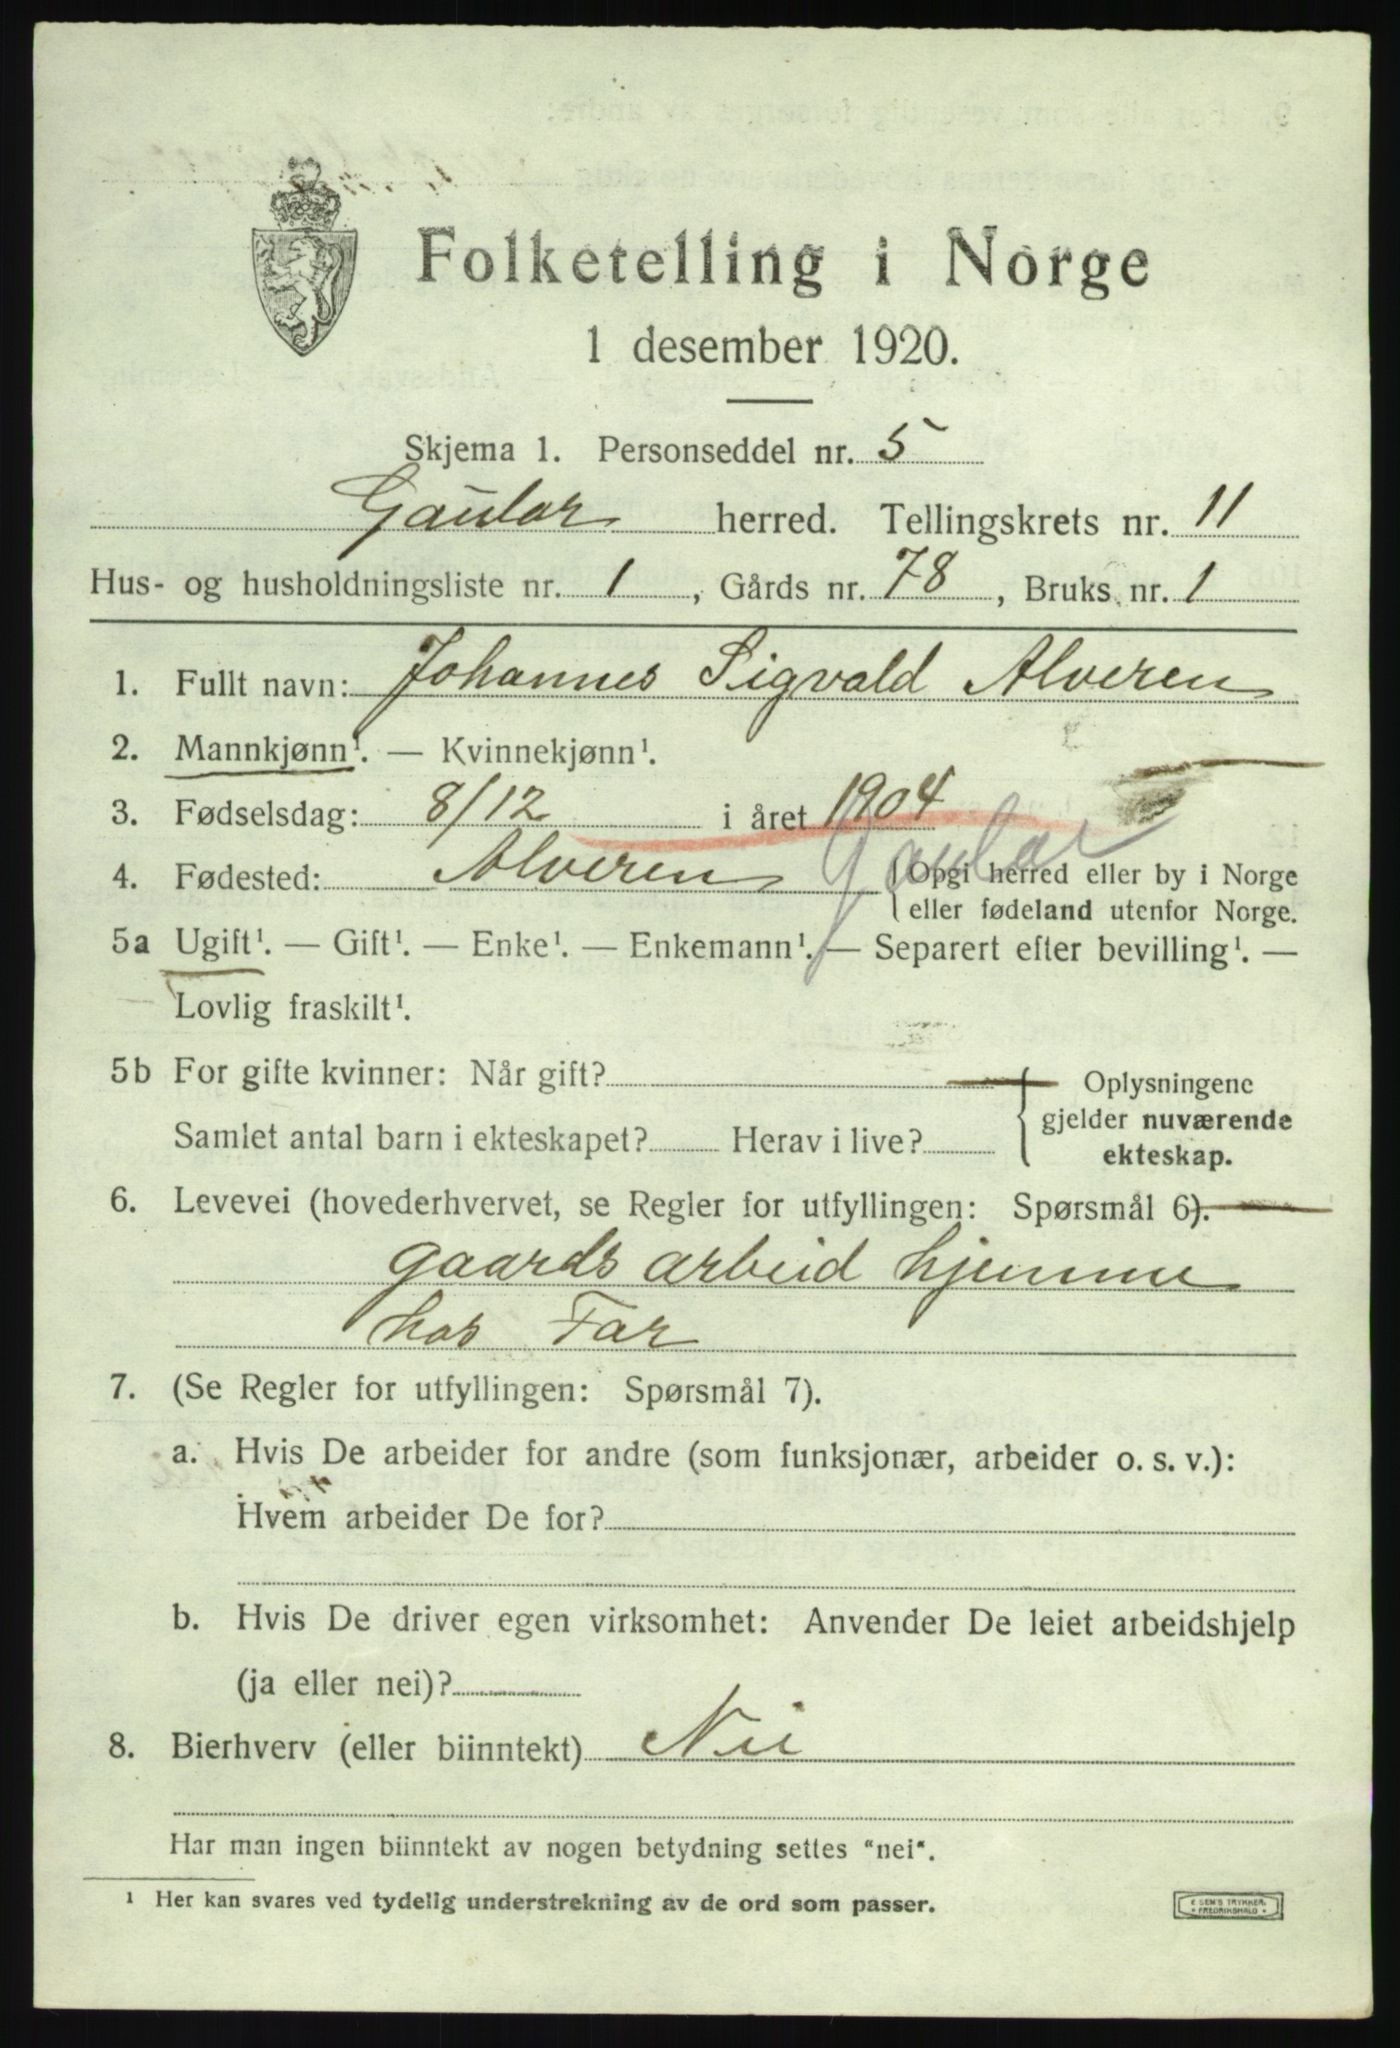 Folketelling i Norge
1 desember 1920.
Skjema 1. Personseddel nr. 5
Gaular herred. Tellingskrets nr. 11
Hus- og husholdningsliste nr. 1, Gårds nr. 78, Bruks nr. 1
1. Fullt navn: Johannes Sigvald Alveren
2. Mannkjønn¹. — Kvinnekjønn¹.
3. Fødselsdag: 8/12 i året 1904
4. Fødested: Alveren Gaular {Opgi herred eller by i Norge
eller fødeland utenfor Norge.
5a Ugift¹. — Gift¹. — Enke¹. — Enkemann¹. — Separert efter bevilling¹. —
Lovlig fraskilt¹.
5b For gifte kvinner: Når gift? — { Oplysningene
gjelder nuværende
Samlet antal barn i ekteskapet? Herav i live?
ekteskap.
6. Levevei (hovederhvervet, se Regler for utfyllingen: Spørsmål 6).
gaards arbeid hjemme
hos Far
7. (Se Regler for utfyllingen: Spørsmål 7).
a. Hvis De arbeider for andre (som funksjonær, arbeider o. s. v.):
Hvem arbeider De for?
b. Hvis De driver egen virksomhet: Anvender De leiet arbeidshjelp
(ja eller nei)?
8. Bierhverv (eller biinntekt) Nei
Har man ingen biinntekt av nogen betydning settes "nei".
¹ Her kan svares ved tydelig understrekning av de ord som passer.
E SEM'S TRYKKERI
FREDRIKSHALD